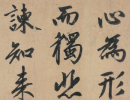 心為形
而獨悲
諫知来